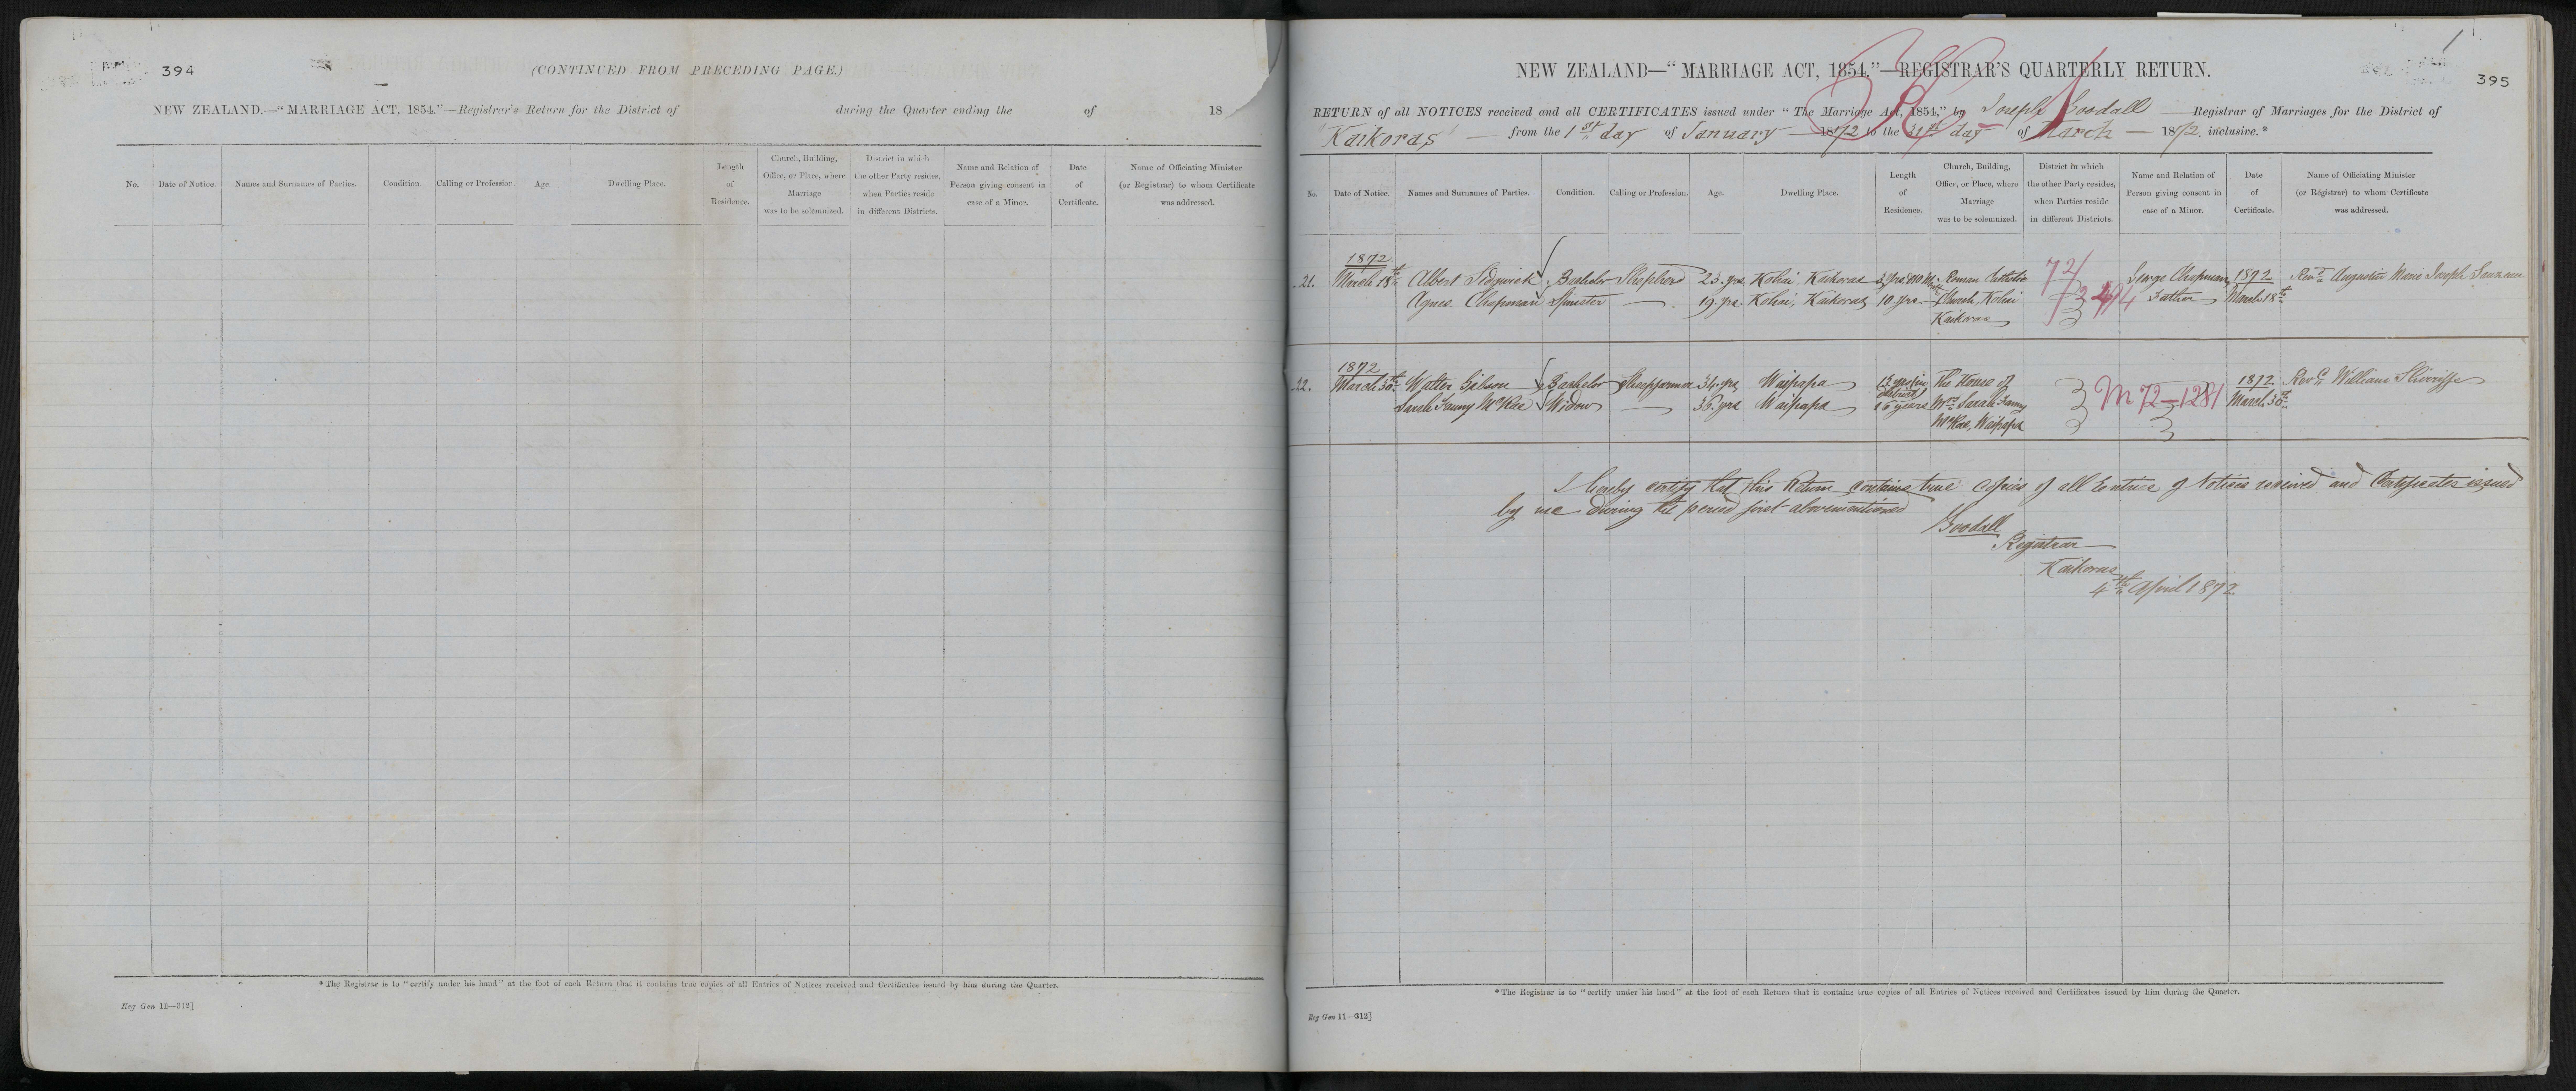 394
(CONTINUED FROM PRECEDING PAGE.)
NEW ZEALAND.—"MARRIAGE ACT, 1854."—Registrar's Return for the District of during the Quarter ending the of 18
No. Date of Notice. Names and Surnames of Parties. Condition. Calling or Profession. Age. Dwelling Place. Length of Residence. Church, Building, Office, or Place, where Marriage was to be solemnized. District in which the other Party resides, when Parties reside in different Districts. Name and Relation of Person giving consent in case of a Minor. Date of Certificate. Name of Officiating Minister (or Registrar) to whom Certificate was addressed.
*The Registrar is to "certify under his hand" at the foot of each Return that it contains true copies of all Entries of Notices received and Certificates issued by him during the Quarter.
Reg Gen 11—312]
1
395
NEW ZEALAND—"MARRIAGE ACT, 1854."—REGISTRAR'S QUARTERLY RETURN.
RETURN of all NOTICES received and all CERTIFICATES issued under "The Marriage Act, 1854," by Joseph Goodall Registrar of Marriages for the District of
Kaikoras from the 1st day of January 1872 to the 31st day of March 1872, inclusive.*
No. Date of Notice. Names and Surnames of Parties. Condition. Calling or Profession. Age. Dwelling Place. Length of Residence. Church, Building, Office, or Place, where Marriage was to be solemnized. District in which the other Party resides, when Parties reside in different Districts. Name and Relation of Person giving consent in case of a Minor. Date of Certificate. Name of Officiating Minister (or Registrar) to whom Certificate was addressed.
1872
21. March 18th Albert Sedgwick Bachelor Shepherd 23 yrs Kohai, Kaikoras 3 yrs Roman Catholic 72/ George Chapman 1872 Revd Augustin Marie Joseph
Agnes Chapman Spinster — 19 yrs. Kohai, Kaikoras 10 yrs. Church, Kohai 494 Father March 18th
Kaikoras
1872
22. March 30th Walter Gibson Bachelor Sheepfarmer 34 yrs Waipapa 13 yrs in District The House of M 72—1281 1872 Revd William Sherriffs
Sarah Fanny McRae Widow — 36 yrs Waipapa 16 years Mrs Sarah Fanny March 30th
McRae, Waipapa
I hereby certify that this Return contains true copies of all Entries of Notices received and Certificates issued
by me during the period first abovementioned
Goodall
Registrar
Kaikoras
4th April 1872.
*The Registrar is to "certify under his hand" at the foot of each Return that it contains true copies of all Entries of Notices received and Certificates issued by him during the Quarter.
Reg Gen 11—312]